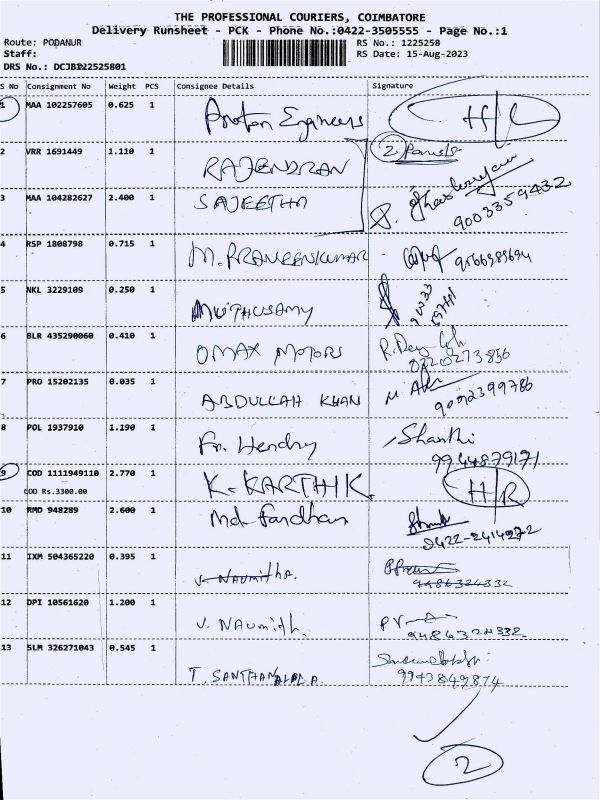 THE PROFESSIONAL COURIERS, COIMBATORE
Delivery Runsheet - PCK - Phone No.:0422-3505555 - Page No.:1
Route: PODANUR RS No.: 1225258
Staff: RS Date: 15-Aug-2023
DRS No.: DCJB122525801
S No Consignment No Weight PCS Consignee Details Signature
1 MAA 102257605 0.625 1 Engineers H/L
2 VRR 1691449 1.110 1 RAJENDRAN 2 Parcels
3 MAA 104282627 2.400 1 SAJEETHA 9003359432
4 RSP 1808798 0.715 1 M. PRANEENKUMAR
5 NKL 3229109 0.250 1 MUTHUSAMY
6 BLR 435290060 0.410 1 OMAX MOTORS
7 PRO 15202135 0.035 1 ABDULLAH KHAN 9092399786
8 POL 1937910 1.190 1 Fr. Hendry Shanthi
9944879171
9 COD 1111949110 2.770 1 K. KARTHIK H/R
COD Rs.3300.00
10 RMD 948289 2.600 1 Md Fardhan 0422-2414272
11 IXM 504365220 0.395 1 V. Naumitha. 9486324332
12 DPI 10561620 1.200 1 V. Naumith. PV
9486324332
13 SLM 326271043 0.545 1 T. 9943849874
2